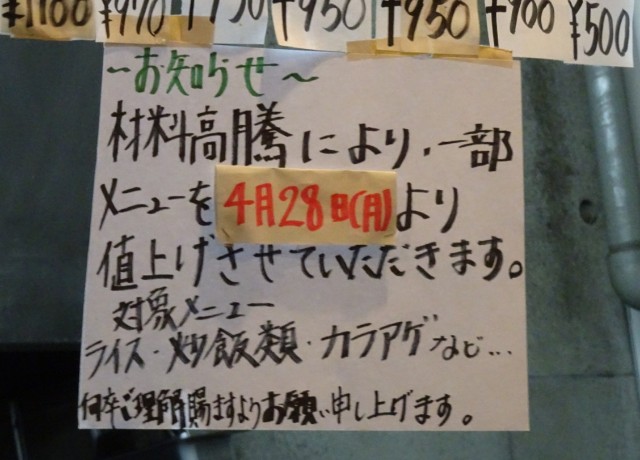 ¥1100 ¥970 ¥950 ¥950 ¥950 ¥900 ¥500
~お知らせ~
材料高騰により、一部
メニューを4月28日(月)より
値上げさせていただきます。
対象メニュー
ライス・炒飯類・カラアゲなど…
何卒ご理解賜ますようお願い申し上げます。